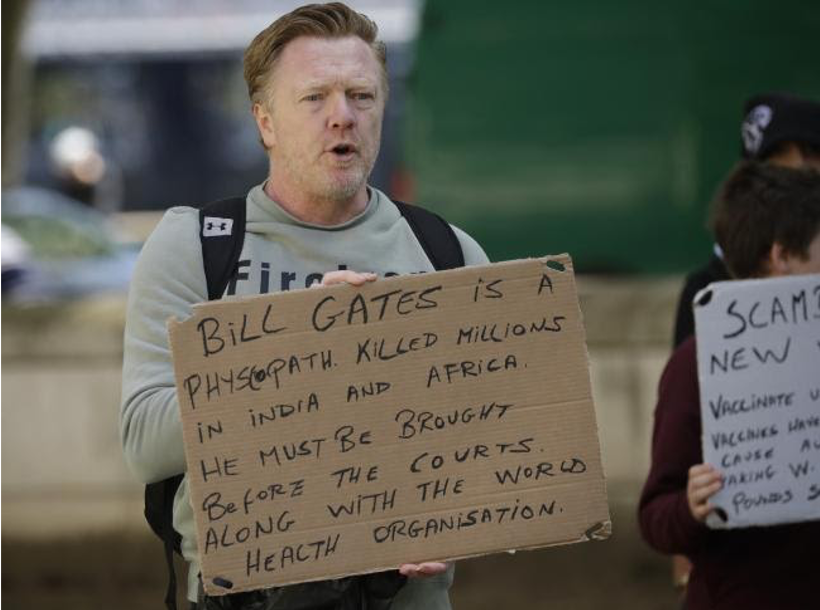 Fire
BILL GATES IS A
PHYSCOPATH. KILLED MILLIONS
IN INDIA AND AFRICA.
HE MUST BE BROUGHT
BEFORE THE COURTS.
ALONG WITH THE WORLD
HEALTH ORGANISATION.
SCAM
NEW
VACCINATE
VACCINES HAVE
CAUSE
W.
POUNDS